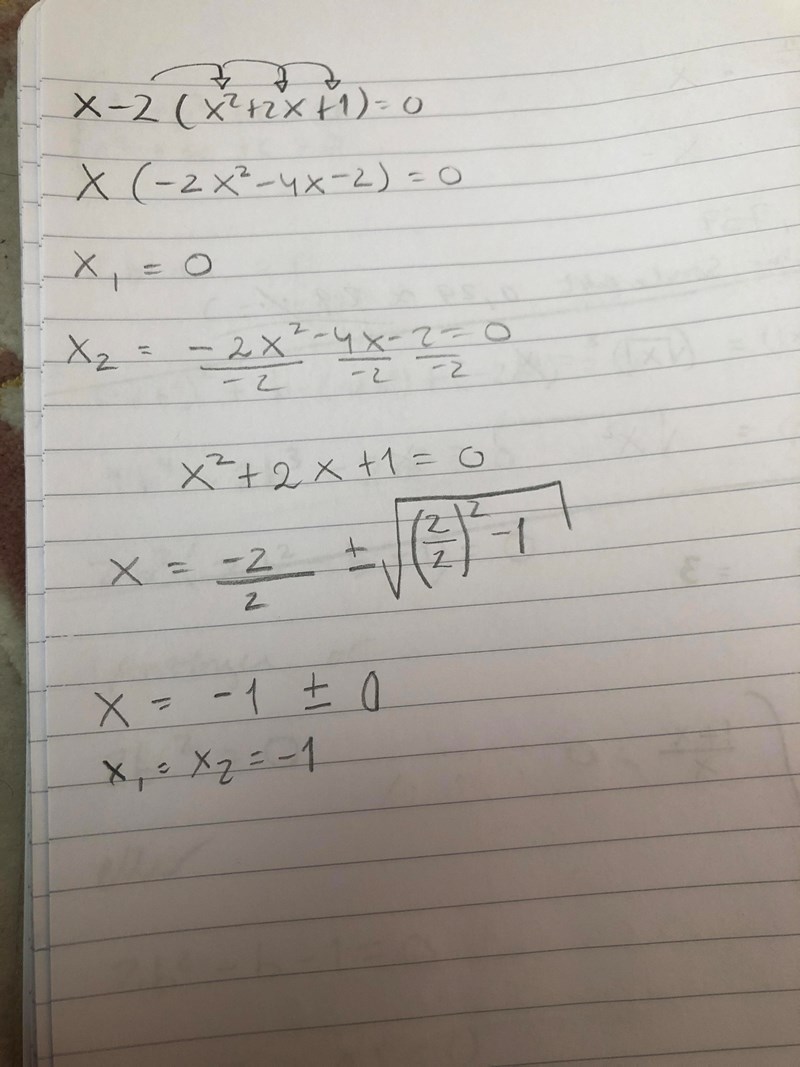 x-2(x²+2x+1)=0
x(-2x²-4x-2)=0
x₁=0
x₂ = -2x²/-2 -4x/-2 -2/-2 =0
x²+2x+1=0
x = -2/2 ± √((2/2)²-1)
x = -1 ± 0
x₁=x₂=-1